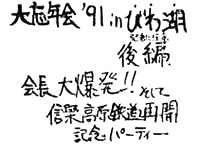 大忘年会'91inびわ湖
後編
会長大爆発!!そして
信楽高原鉄道再開
記念パーティー